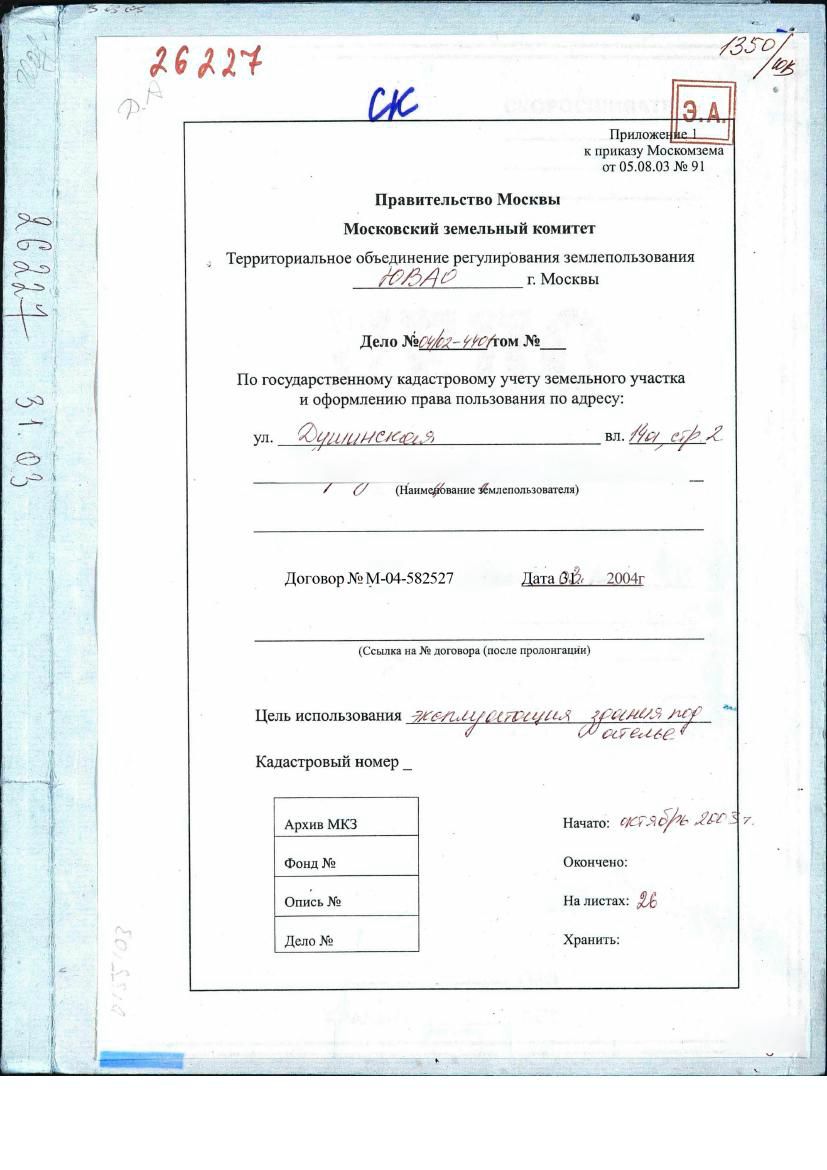 26227
1350/ЮВ
СК
Э.А.
Приложение 1
к приказу Москомзема
от 05.08.03 № 91
Правительство Москвы
Московский земельный комитет
Территориальное объединение регулирования землепользования
ЮВАО г. Москвы
Дело №04/02-4401 том №___
По государственному кадастровому учету земельного участка
и оформлению права пользования по адресу:
ул. Душинская вл. 14а, стр. 2
(Наименование землепользователя)
Договор № М-04-582527 Дата 31. 2004г
(Ссылка на № договора (после пролонгации)
Цель использования эксплуатация здания под
ателье
Кадастровый номер _
Архив МКЗ
Фонд №
Опись №
Дело №
Начато: октябрь 2003 г.
Окончено:
На листах: 26
Хранить:
26227 31.03